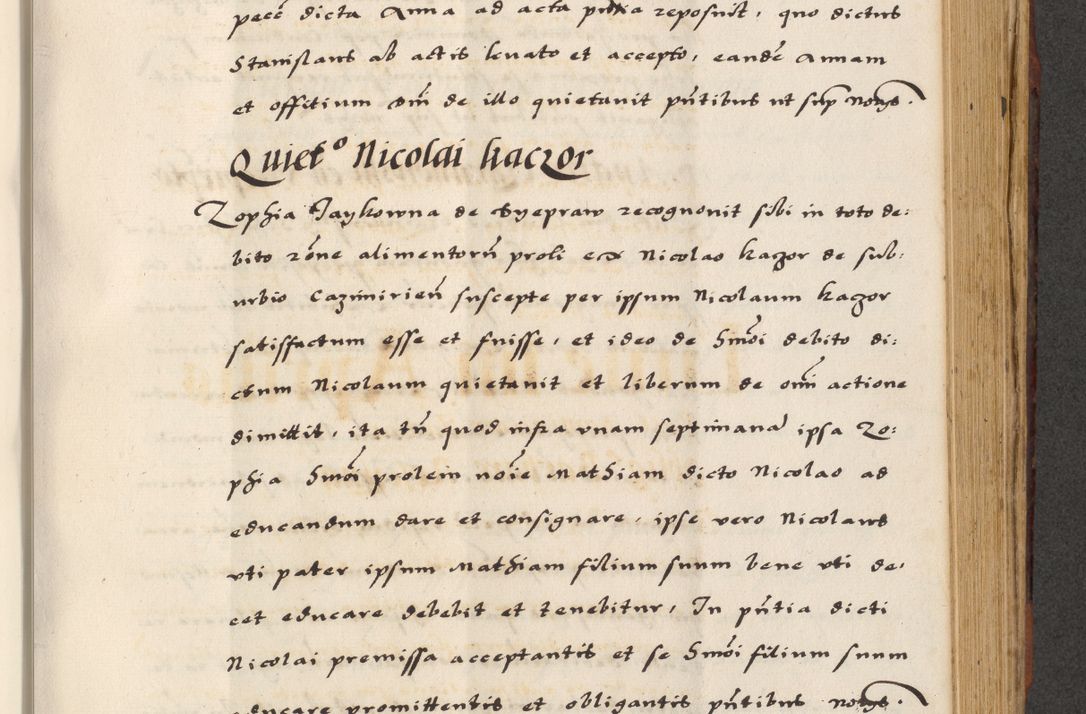 pecc̃ dicta Anna ad acta pñtia reposuit, quo dictus
Stanislaus ab actis levato et accepto, eandẽ Annam
et offitium Dñi de illo quietavit pñtibus ut sup notis.
Quietᵒ Nicolai kaczor
Zophia Jaykowna de Syepraw recognovit sibi in toto de:
bito rõne alimentorũ proli ex Nicolao kaczor de sub:
urbio Cazimirieñ suscepte per ipsum Nicolaum kaczor
satisfactum esse et fuisse, et ideo de hmõi debito di:
ctum Nicolaum quietavit et liberum de omi actione
dimittit, ita tñ quod infra vnam septimanã ipsa Zo:
phia hmõi prolem noĩe Mathiam dicto Nicolao ad
educandum dare et consignare, ipse vero Nicolaus
vti pater ipsum Mathiam filium suum bene vti de,
cet educare debebit et tenebitur, In pñtia dicti
Nicolai premissa acceptantis et se hmõi filium suum
educare promittentis et obligantis pñtibus notis.